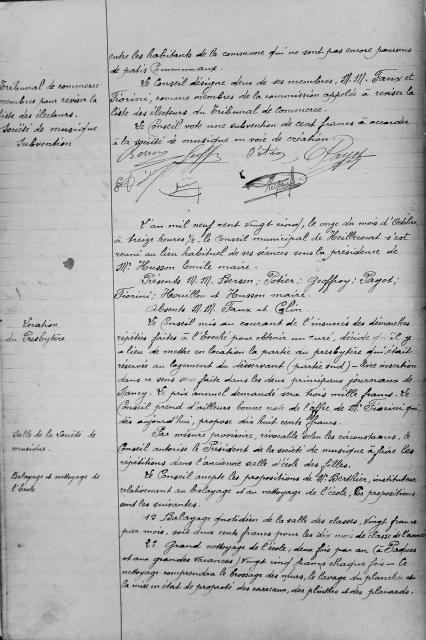 entre les habitants de la commune qui ne sont pas encore pourvus
de patis Communaux.
Tribunal de commerce
membres pour reviser la
liste des électeurs.
Le Conseil désigne deux de ses membres, M.M. Faux et
Fiorini, comme membres de la commission appelée à reviser la
liste des électeurs du Tribunal de Commerce.
Société de musique
Subvention
Le Conseil vote une subvention de cent francs à accorder
à la société de musique en voie de création.
L'an mil neuf cent vingt cinq, le onze du mois d'Octobre,
à treize heures 1/2, le Conseil municipal de Heillecourt s'est
réuni au lieu habituel de ses séances sous la présidence de
Mr Husson Emile maire.
Présents M.M. Berson; Potier; Geoffroy; Payot;
Fiorini; Houillon et Husson maire.
Absents M.M. Faux et Colin.
Location
du Presbytère
Le Conseil mis au courant de l'insuccès des démarches
répétées faites à l'Evêché pour obtenir un curé, décide qu'il y
a lieu de mettre en location la partie du presbytère qui était
réservée au logement du désservant (partie sud) – Une insertion
dans ce sens sera faite dans les deux principaux journaux de
Nancy. Le prix annuel demandé sera trois mille francs. Le
Conseil prend d'ailleurs bonne note de l'offre de Mr Fiorini qui
dès aujourd'hui, propose dix huit cents francs.
Salle de la Société de
musique.
Par mesure provisoire, revocable selon les circonstances, le
Conseil autorise le Président de la société de musique à faire les
répétitions dans l'ancienne salle d'école des filles.
Balayage et nettoyage de
l'Ecole
Le Conseil accepte les propositions de Mr Berthier, instituteur
relativement au balayage et au nettoyage de l'école, les propositions
sont les suivantes.
1º Balayage quotidien de la salle des classes, vingt francs
par mois, soit deux cents francs pour les dix mois de classe de l'année
2º Grand nettoyage de l'école, deux fois par an (à Pâques
et aux grandes vacances) Vingt cinq francs chaque fois – le
nettoyage comprendra le brossage des murs, le lavage du plancher et
la mise en état de propreté des carreaux, des plinthes et des placards.